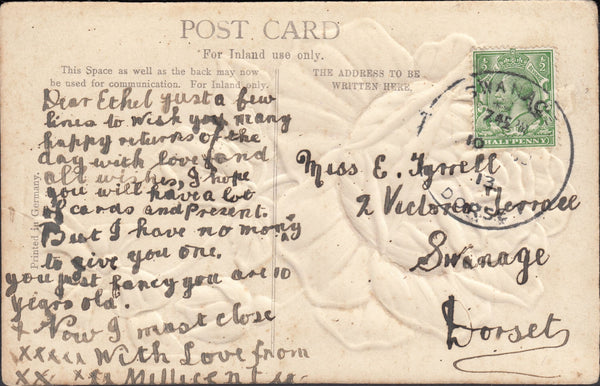 POST CARD
For Inland use only.
This Space as well as the back may now
be used for communication. For Inland only.
THE ADDRESS TO BE
WRITTEN HERE.
Printed in Germany.
Dear Ethel just a few
lines to wish you many
happy returns of the
day with love and
all wishes, I hope
you will have a lot
of cards and Present.
But I have no mony
to give you one.
you just fancy you are 10
years old.
Now I must close
xxxxx With Love from
xx xxx Millicent
Miss E. Tyrrell
2 Victoria Terrace
Swanage
Dorset
SWANAGE
10
17
DORSET
HALFPENNY